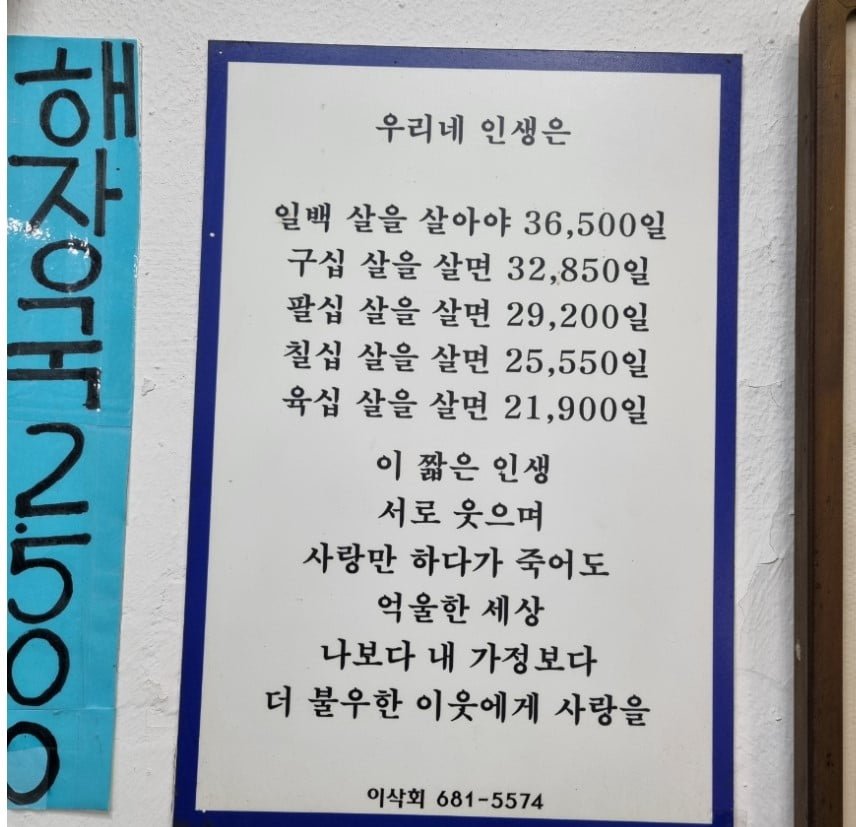 해장국 2.500
우리네 인생은
일백 살을 살아야 36,500일
구십 살을 살면 32,850일
팔십 살을 살면 29,200일
칠십 살을 살면 25,550일
육십 살을 살면 21,900일
이 짧은 인생
서로 웃으며
사랑만 하다가 죽어도
억울한 세상
나보다 내 가정보다
더 불우한 이웃에게 사랑을
이삭회 681-5574